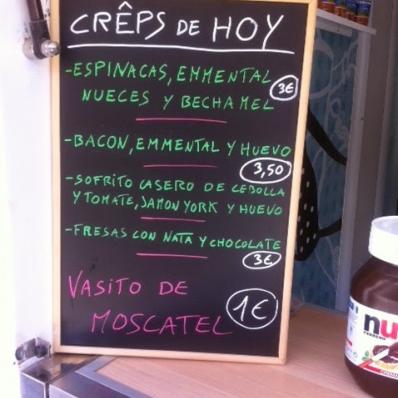 CRÊPS DE HOY
-ESPINACAS, EMMENTAL
NUECES Y BECHAMEL 3€
-BACON, EMMENTAL Y HUEVO
3,50
-SOFRITO CASERO DE CEBOLLA
Y TOMATE, JAMON YORK Y HUEVO
-FRESAS CON NATA Y CHOCOLATE
3€
VASITO DE
MOSCATEL 1€
nu
FERRERO